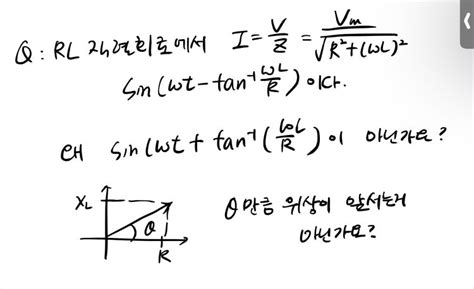 Q: RL 직렬회로에서 I = V/Z = Vm/√(R²+(ωL)²)
sin(ωt - tan⁻¹ ωL/R) 이다.
왜 sin(ωt + tan⁻¹(ωL/R))이 아닌가요?
XL
θ
R
θ만큼 위상이 앞서는거
아닌가요?